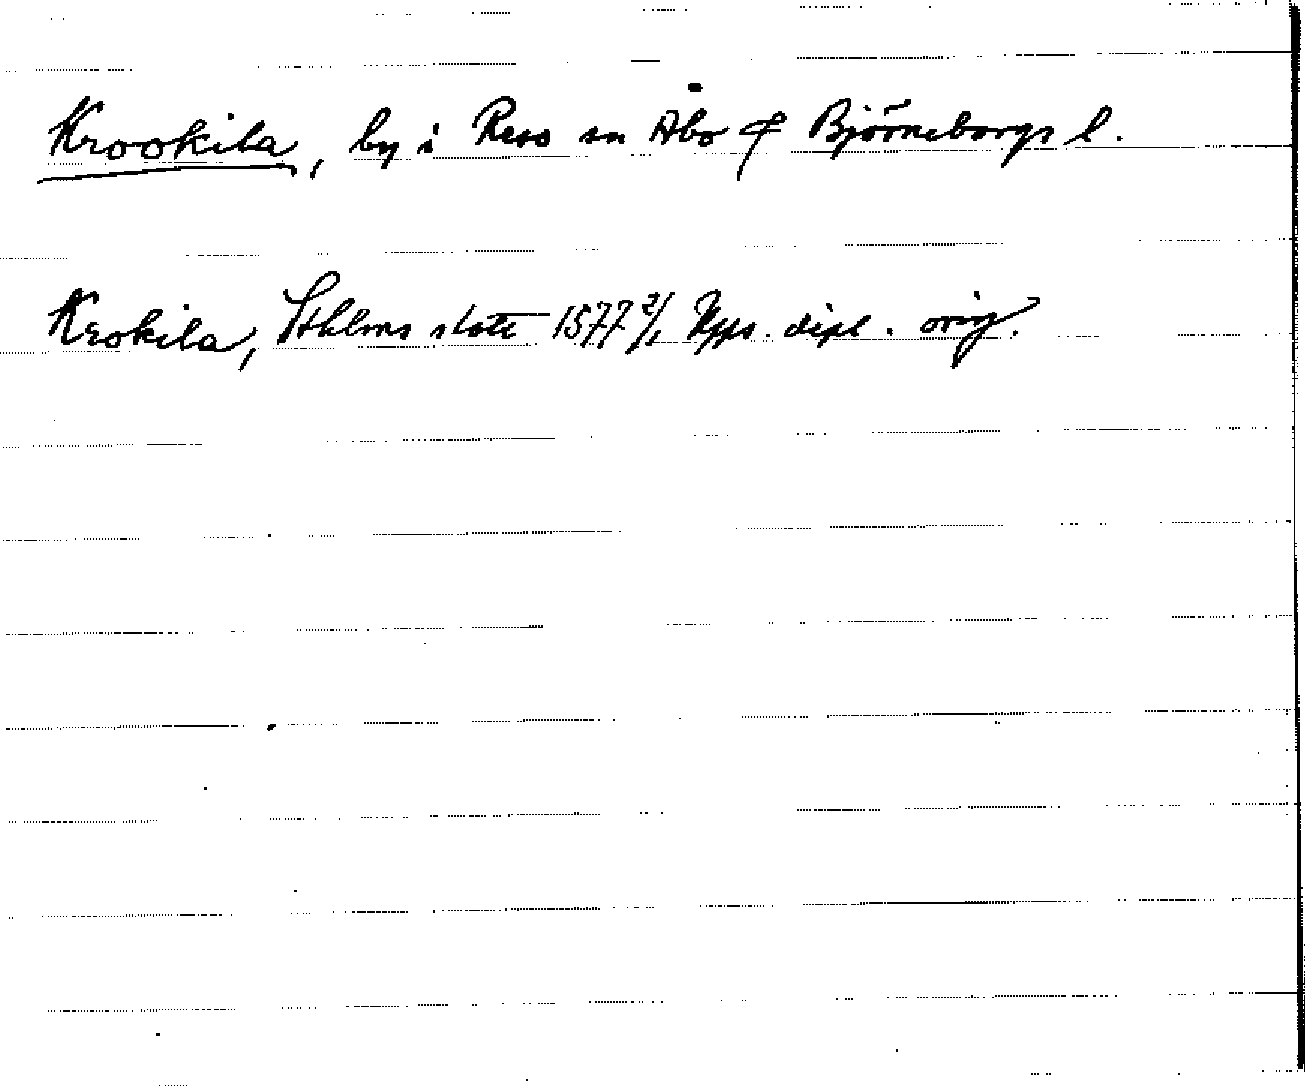 Krookila, by i Reso sn Åbo & Björneborgs l.
Krokila, Sthlms slott 1577 2/1 Upps. dipl. orig.